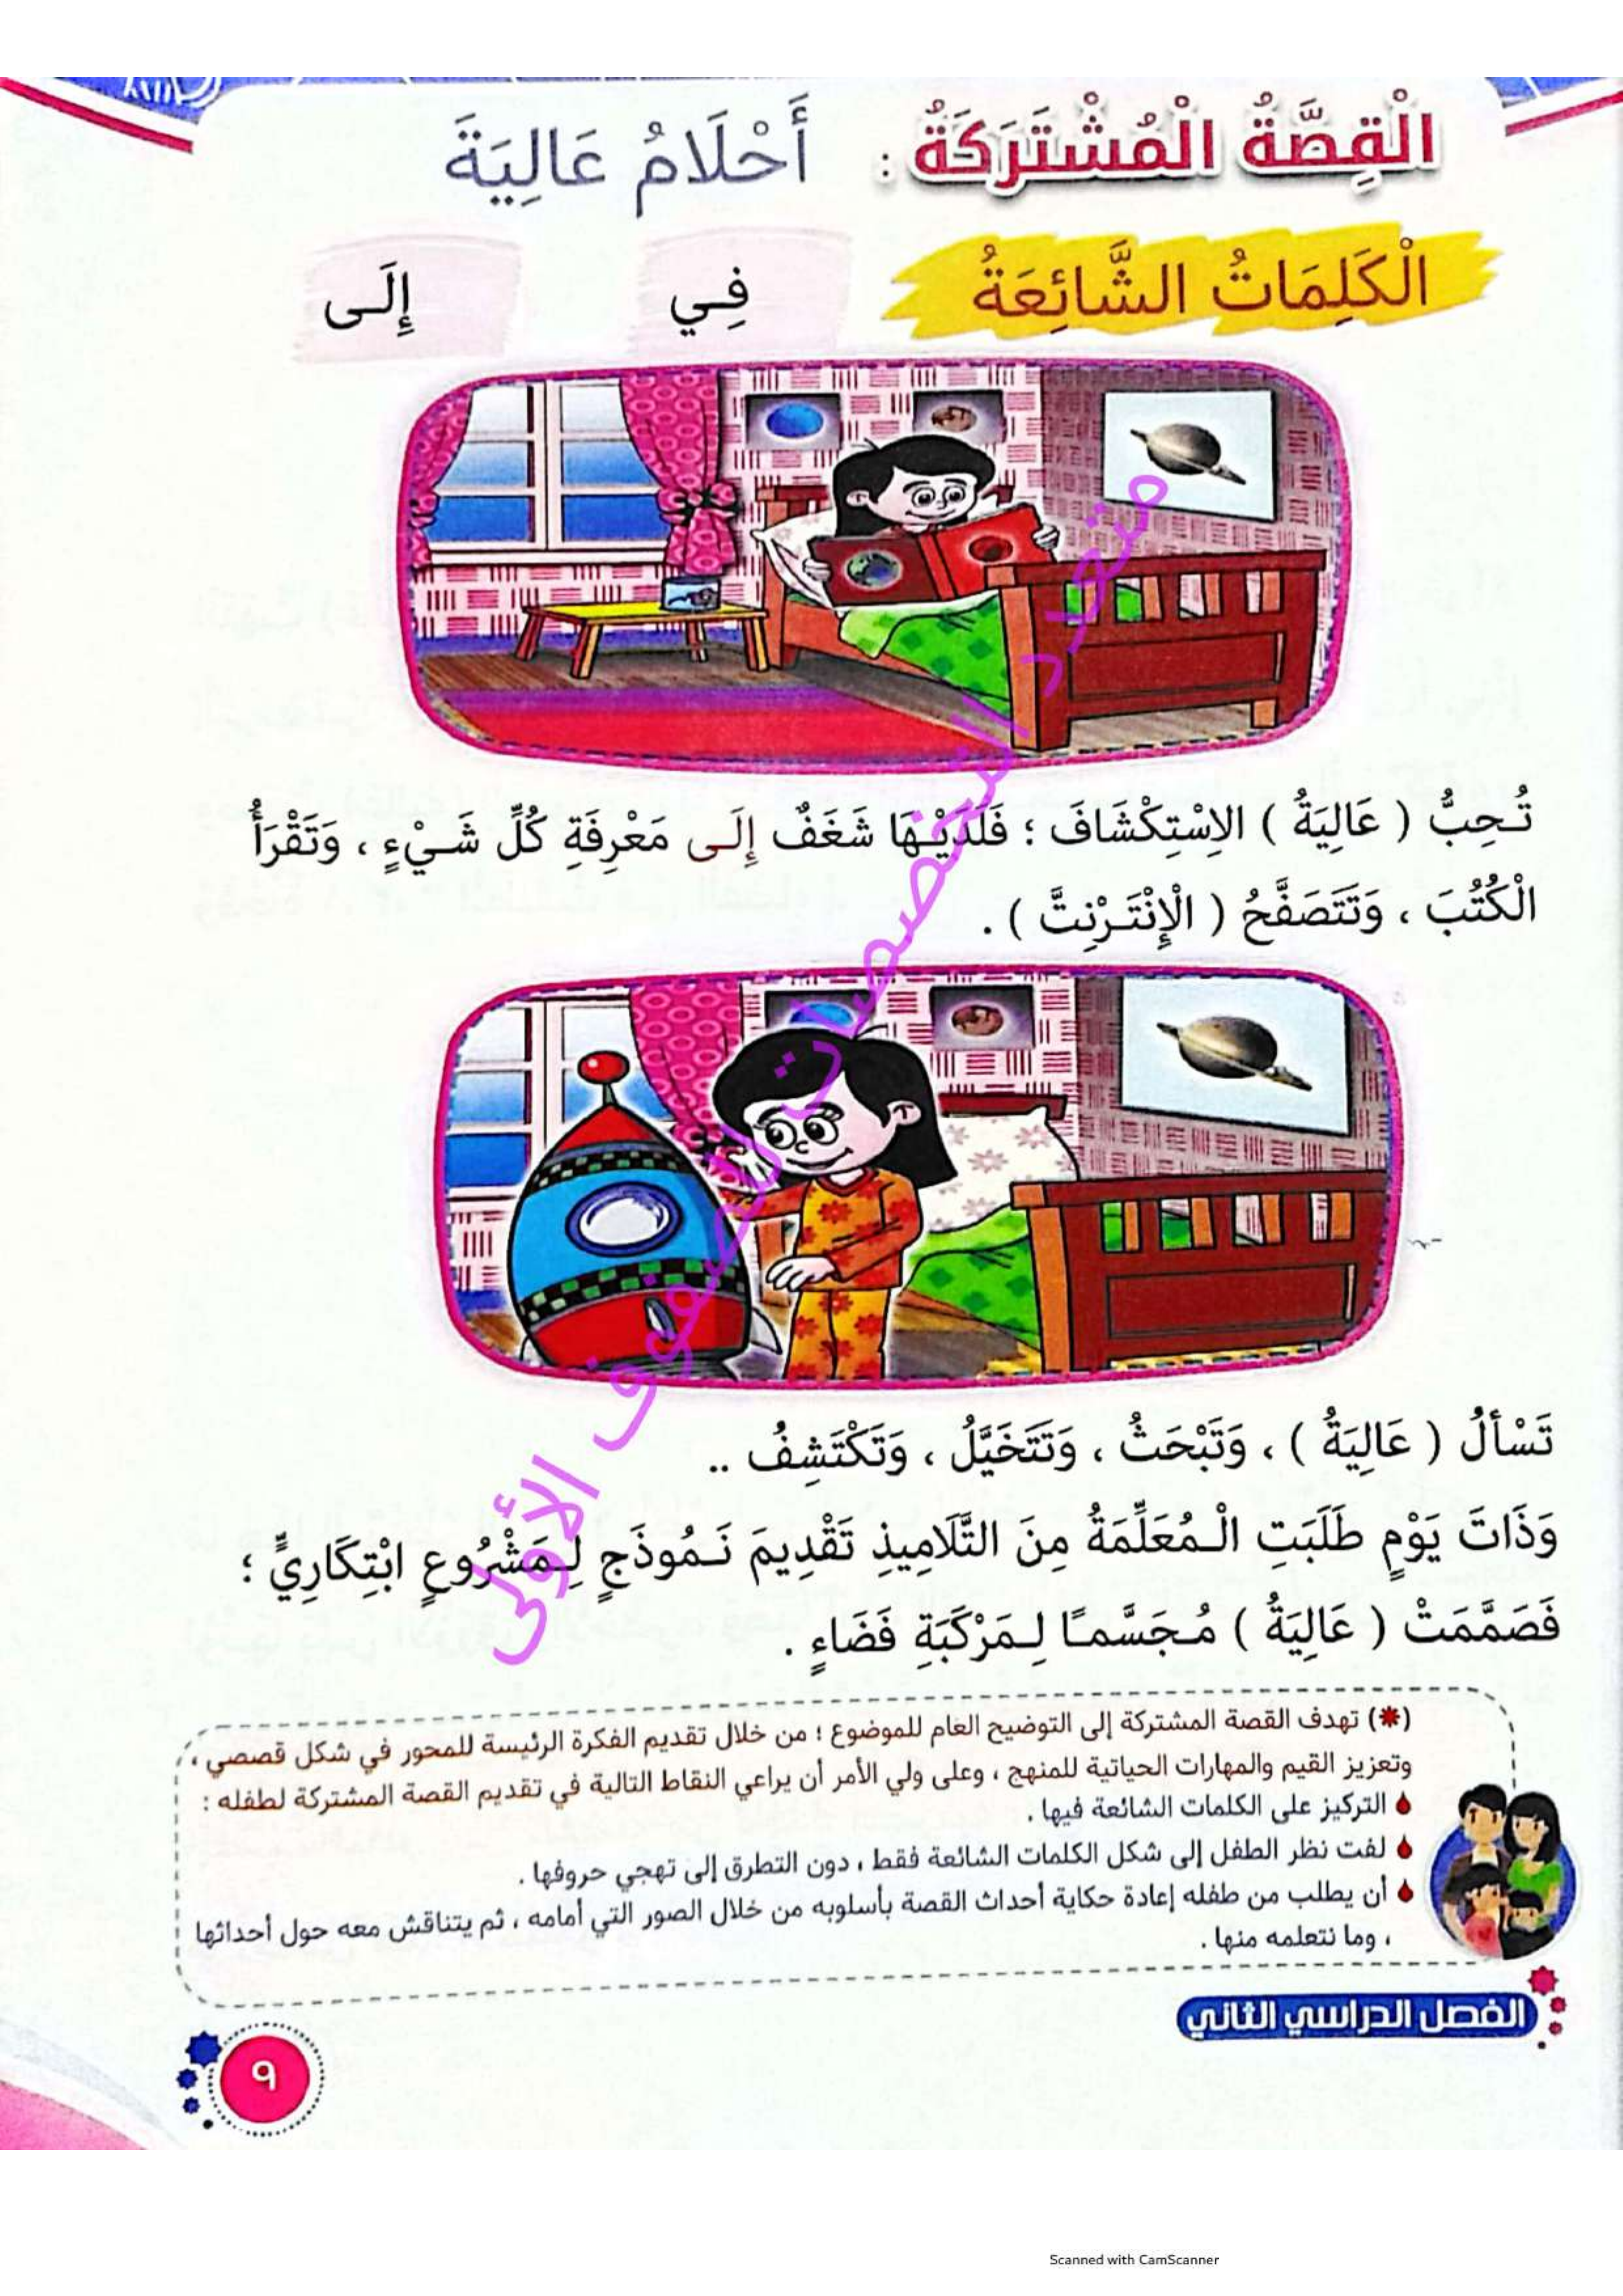 الْقِصَّةُ الْمُشْتَرَكَةُ : أَحْلَامُ عَالِيَةَ
الْكَلِمَاتُ الشَّائِعَةُ فِي إِلَى
تُحِبُّ ( عَالِيَةُ ) الِاسْتِكْشَافَ ؛ فَلَدَيْهَا شَغَفٌ إِلَى مَعْرِفَةِ كُلِّ شَيْءٍ ، وَتَقْرَأُ
الْكُتُبَ ، وَتَتَصَفَّحُ ( الْإِنْتَرْنِتَّ ) .
تَسْأَلُ ( عَالِيَةُ ) ، وَتَبْحَثُ ، وَتَتَخَيَّلُ ، وَتَكْتَشِفُ ..
وَذَاتَ يَوْمٍ طَلَبَتِ الْمُعَلِّمَةُ مِنَ التَّلَامِيذِ تَقْدِيمَ نَمُوذَجٍ لِمَشْرُوعٍ ابْتِكَارِيٍّ ؛
فَصَمَّمَتْ ( عَالِيَةُ ) مُجَسَّمًا لِمَرْكَبَةِ فَضَاءٍ .
(*) تهدف القصة المشتركة إلى التوضيح العام للموضوع ؛ من خلال تقديم الفكرة الرئيسة للمحور في شكل قصصي ،
وتعزيز القيم والمهارات الحياتية للمنهج ، وعلى ولي الأمر أن يراعي النقاط التالية في تقديم القصة المشتركة لطفله :
التركيز على الكلمات الشائعة فيها .
لفت نظر الطفل إلى شكل الكلمات الشائعة فقط ، دون التطرق إلى تهجي حروفها .
أن يطلب من طفله إعادة حكاية أحداث القصة بأسلوبه من خلال الصور التي أمامه ، ثم يتناقش معه حول أحداثها
، وما نتعلمه منها .
الفصل الدراسي الثاني
٩
متعدد التخصصات للصفوف الأولى
Scanned with CamScanner